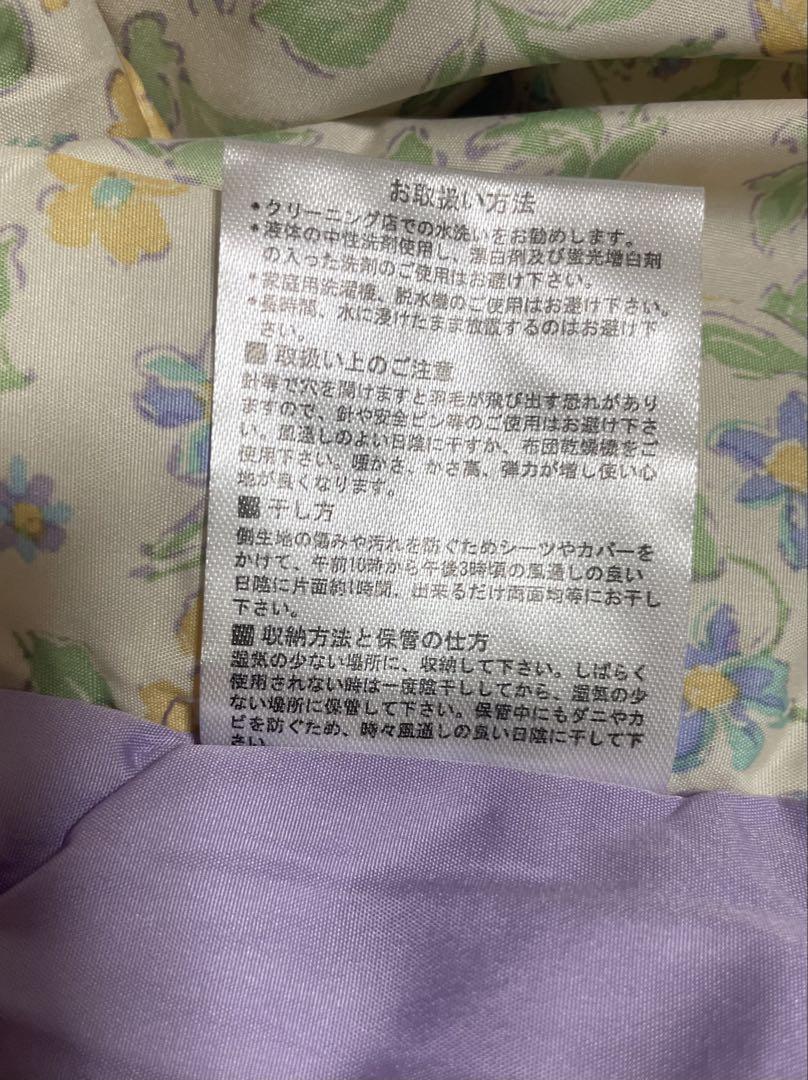 お取扱い方法
•クリーニング店での水洗いをお勧めします。
•液体の中性洗剤使用し、漂白剤及び蛍光増白剤
の入った洗剤のご使用はお避け下さい。
•家庭用洗濯機、脱水機のご使用はお避け下さい。
•長時間、水に浸けたまま放置するのはお避け下
さい。
取扱い上のご注意
針等で穴を開けますと羽毛が飛び出す恐れがあり
ますので、針や安全ピン等のご使用はお避け下さ
い。風通しのよい日陰に干すか、布団乾燥機をご
使用下さい。暖かさ、かさ高、弾力が増し使い心
地が良くなります。
干し方
側生地の傷みや汚れを防ぐためシーツやカバーを
かけて、午前10時から午後3時頃の風通しの良い
日陰に片面約1時間、出来るだけ両面均等にお干し
下さい。
収納方法と保管の仕方
湿気の少ない場所に、収納して下さい。しばらく
使用されない時は一度陰干ししてから、湿気の少
ない場所に保管して下さい。保管中にもダニやカ
ビを防ぐため、時々風通しの良い日陰に干して下
さい。